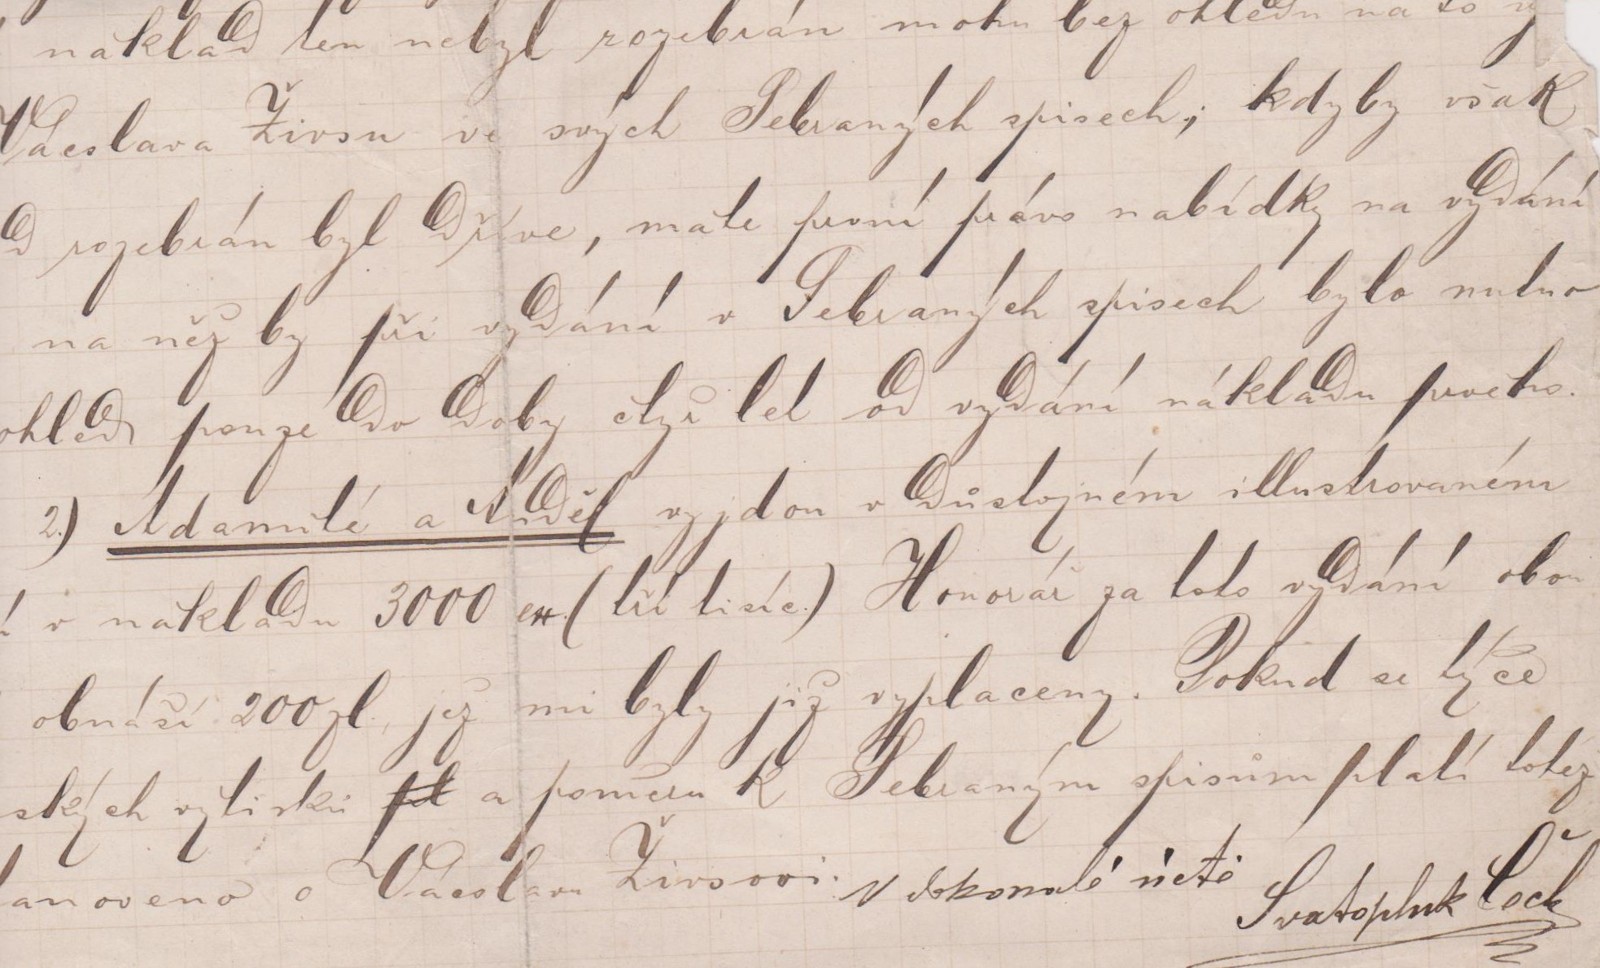 náklad ten nebyl rozebrán mohu bez ohledu na to
Václava Živsu ve svých Sebraných spisech; kdyby však
d rozebrán byl dříve, máte první právo nabídky na vydání
na něž by při vydání v Sebraných spisech bylo nutno
ohled pouze do doby čtyř let od vydání nákladu prvého.
2.) Adamité a Anděl vyjdou v důstojném illustrovaném
í v nákladu 3000 ex. (tří tisíc.) Honorář za toto vydání obou
obnáší 200 zl, jež mi byly již vyplaceny. Pokud se týče
ských výtisků a poměru k Sebraným spisům platí totéž
anoveno o Václavu Živsovi. V dokonalé úctě
Svatopluk Čech